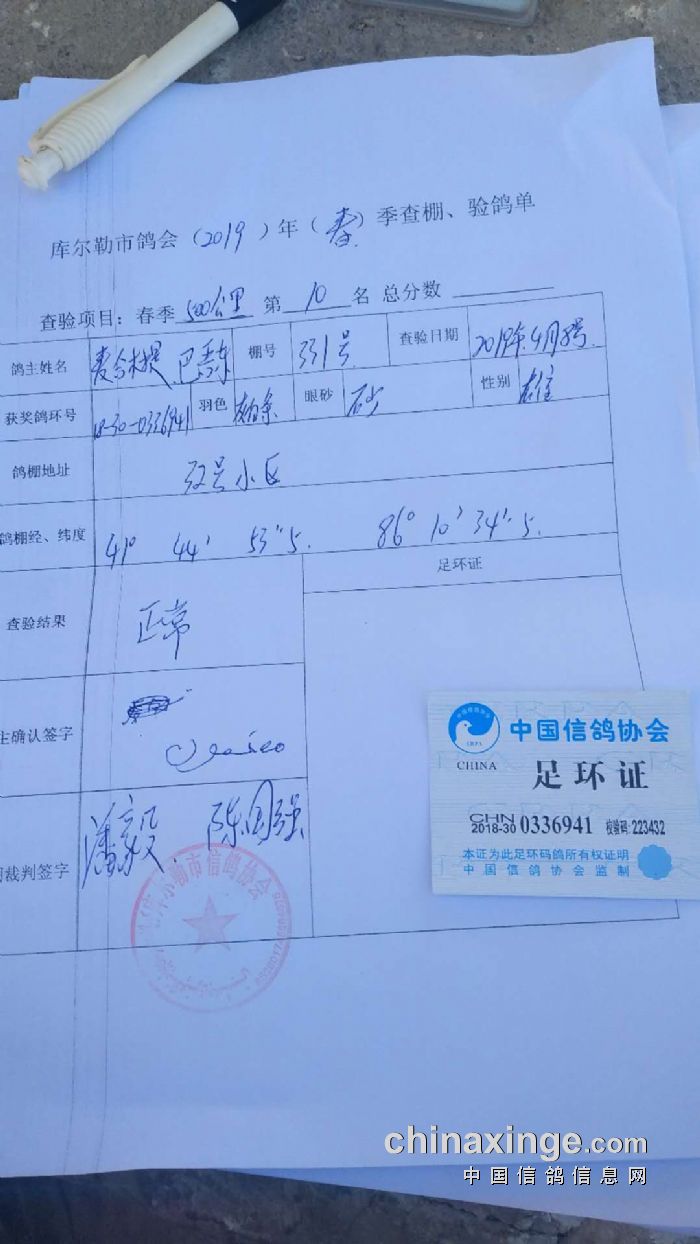 库尔勒市鸽会（2019）年（春）季查棚、验鸽单
查验项目：春季 500公里 第 10 名 总分数
鸽主姓名 麦合木提 巴 棚号 331号 查验日期 2019年4月8号
获奖鸽环号 18-30-0336941 羽色 眼砂 砂 性别 雄
鸽棚地址 号小区
鸽棚经、纬度 41° 44' 53"5. 86° 10' 34".5
查验结果 正常 足环证
主确认签字
裁判签字 潘毅 陈国强
库尔勒市信鸽协会
中国信鸽协会
CHRPA
CHINA
足环证
CHN
2018-30 0336941 校验码:223432
本证为此足环码鸽所有权证明
中国信鸽协会监制
chinaxinge.com
中国信鸽信息网